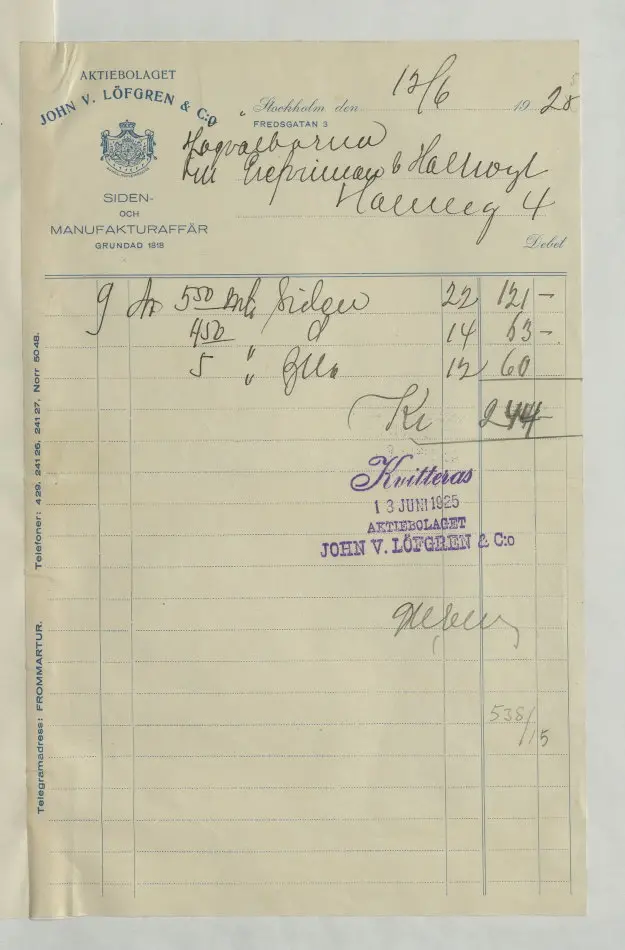 AKTIEBOLAGET
JOHN V. LÖFGREN & C:O
SIDEN-
OCH
MANUFAKTURAFFÄR
GRUNDAD 1818
Stockholm den 12/6 1928
FREDSGATAN 3
4
Debet
9 5 50 Siden 22 121 –
4 50 d 14 63 –
5 " 12 60
Kr 244
Kvitteras
13 JUNI 1925
AKTIEBOLAGET
JOHN V. LÖFGREN & C:o
538/15
Telefoner: 429, 241 26, 241 27, Norr 50 48.
Telegramadress: FROMMARTUR.